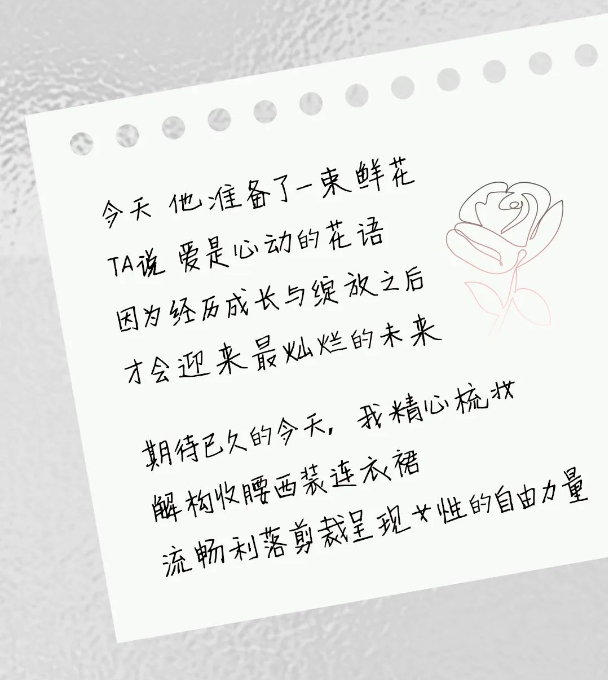 今天 他准备了一束鲜花
TA说 爱是心动的花语
因为经历成长与绽放之后
才会迎来最灿烂的未来
期待已久的今天，我精心梳妆
解构收腰西装连衣裙
流畅利落剪裁呈现女性的自由力量